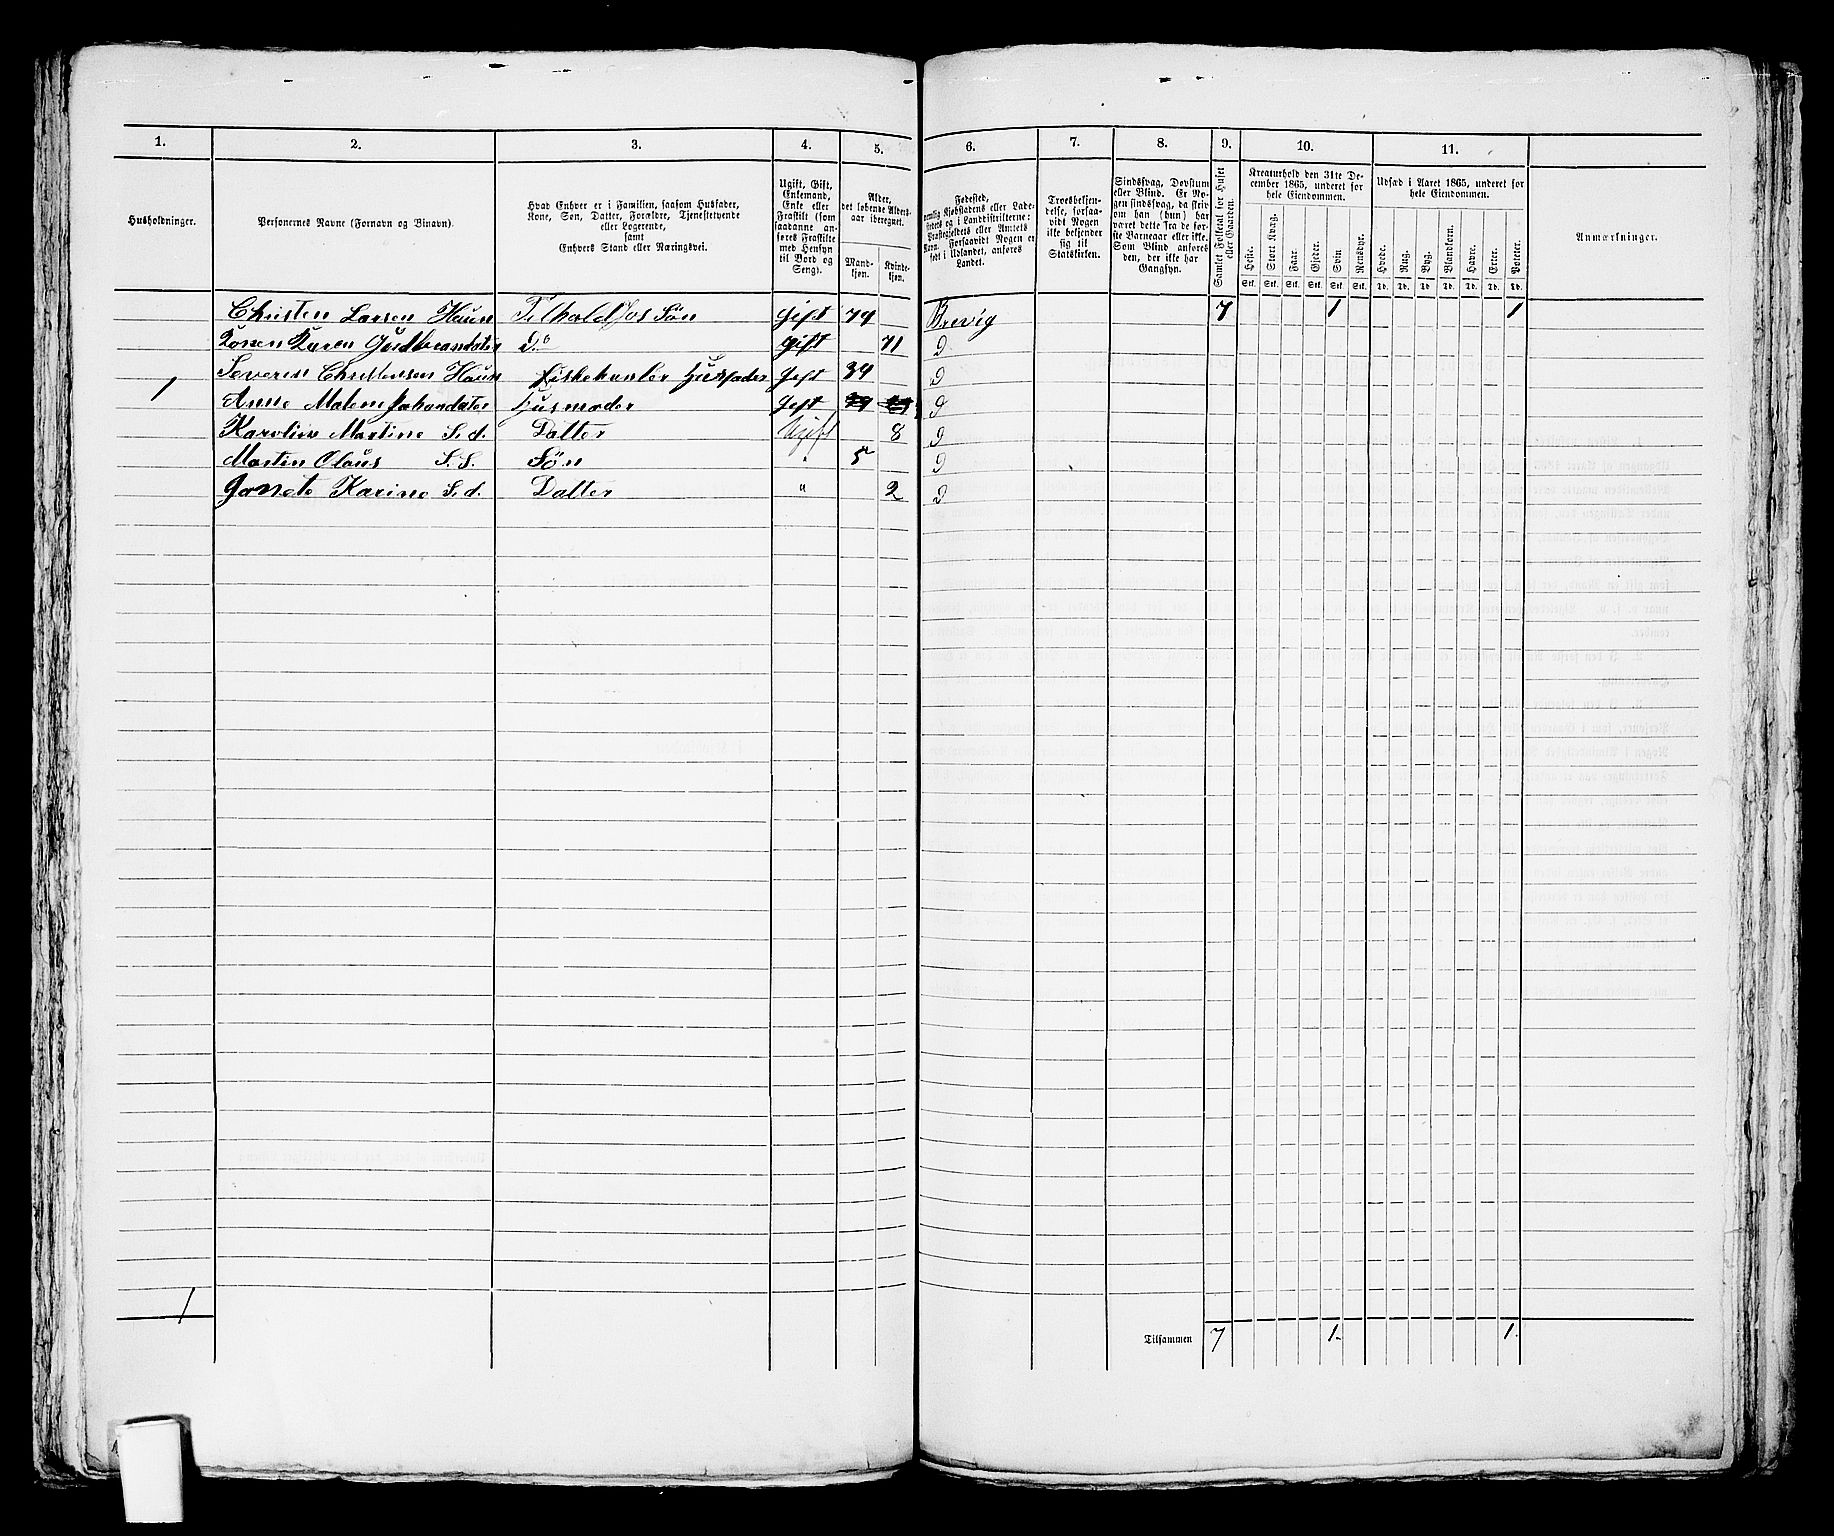 1. 2. 3. 4. 5. 6. 7. 8. 9. 10. 11.
Husholdninger.
Personernes Navne (Fornavn og Binavn).
Hvad Enhver er i Familien, saasom Husfader,
Kone, Søn, Datter, Forældre, Tjenestetyende
eller Logerende,
samt
Enhvers Stand eller Næringsvei.
Ugift, Gift,
Enkemand,
Enke eller
Fraskilt (som
saadanne an-
føres Fraskilte
med Hensyn
til Bord og
Seng).
Alder,
det løbende Alders-
aar iberegnet.
Mand-
kjøn.
Kvinde-
kjøn.
Fødested,
nemlig Kjøbstadens eller Lade-
stedets og i Landdistrikterne:
Præstegjeldets eller Amtets
Navn. Forsaavidt Nogen er
født i Udlandet, anføres
Landet.
Troesbekjen-
delse, forsaa-
vidt Nogen
ikke bekjender
sig til
Statskirken.
Sindssvag, Døvstum
eller Blind. Er No-
gen sindssvag, da skriv
om han (hun) har
været dette fra de før-
ste Barneaar eller ikke.
Som Blind anføres
den, der ikke har
Gangsyn.
Samlet Folketal for Huset
eller Gaarden.
Kreaturhold den 31te De-
cember 1865, underet for
hele Eiendommen.
Heste. Stort Kvæg. Faar. Gjeder. Svin Rensdyr.
Stk. Stk. Stk. Stk. Stk Stk.
Udsæd i Aaret 1865, underet for
hele Eiendommen.
Hvede. Rug. Byg. Blandkorn. Havre. Erter. Poteter.
Td. Td. Td. Td. Td. Td. Td.
Anmærkninger.
Christen Larsen Søn Gift 74 Brevig 7 1 1
Karen d.o gift 71 D
Severin Christensen Husfader Gift 34 D
1 Anne Husmoder Gift D
Karoline Martine S.d. Datter Ugift 8 D
Martin Olaus S.S. Søn " 5 D
Karine S.d. Datter " 2 D
1 Tilsammen 7 1 1